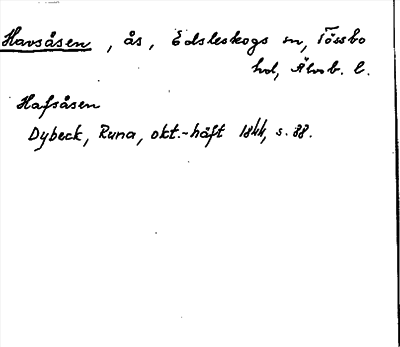 Havsåsen, ås, Edsleskogs sn, Tössbo
hd, Älvsb. l.
Hafsåsen
Dybeck, Runa, okt.-häft 1844, s. 88.